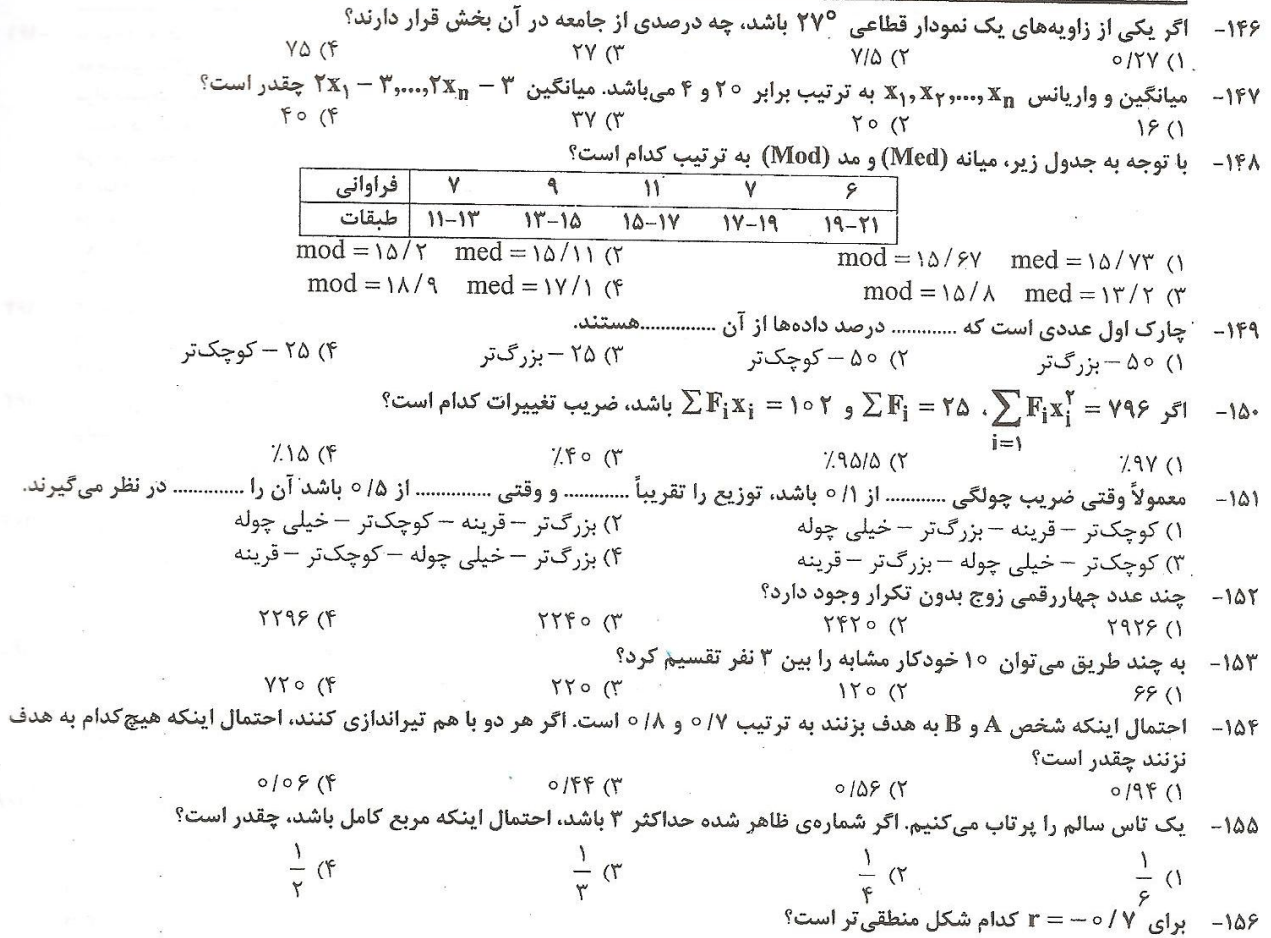 ۱۴۶- اگر یکی از زاویه‌های یک نمودار قطاعی ۲۷° باشد، چه درصدی از جامعه در آن بخش قرار دارند؟
۱) ۰/۲۷ ۲) ۷/۵ ۳) ۲۷ ۴) ۷۵
۱۴۷- میانگین و واریانس x₁,x₂,...,xₙ به ترتیب برابر ۲۰ و ۴ می‌باشد. میانگین ۲x₁ − ۳,...,۲xₙ − ۳ چقدر است؟
۱) ۱۶ ۲) ۲۰ ۳) ۳۷ ۴) ۴۰
۱۴۸- با توجه به جدول زیر، میانه (Med) و مد (Mod) به ترتیب کدام است؟
فراوانی ۷ ۹ ۱۱ ۷ ۶
طبقات ۱۱-۱۳ ۱۳-۱۵ ۱۵-۱۷ ۱۷-۱۹ ۱۹-۲۱
۱) med = ۱۵/۷۳ mod = ۱۵/۶۷ ۲) med = ۱۵/۱۱ mod = ۱۵/۲
۳) med = ۱۳/۲ mod = ۱۵/۸ ۴) med = ۱۷/۱ mod = ۱۸/۹
۱۴۹- چارک اول عددی است که ............. درصد داده‌ها از آن ...............هستند.
۱) ۵۰ – بزرگ‌تر ۲) ۵۰ – کوچک‌تر ۳) ۲۵ – بزرگ‌تر ۴) ۲۵ – کوچک‌تر
۱۵۰- اگر ∑Fᵢxᵢ² = ۷۹۶ ، ∑Fᵢ = ۲۵ و ∑Fᵢxᵢ = ۱۰۲ باشد، ضریب تغییرات کدام است؟
i=۱
۱) ٪۹۷ ۲) ٪۹۵/۵ ۳) ٪۴۰ ۴) ٪۱۵
۱۵۱- معمولاً وقتی ضریب چولگی ............ از ۰/۱ باشد، توزیع را تقریباً ............. و وقتی ............... از ۰/۵ باشد آن را .............. در نظر می‌گیرند.
۱) کوچک‌تر – قرینه – بزرگ‌تر – خیلی چوله ۲) بزرگ‌تر – قرینه – کوچک‌تر – خیلی چوله
۳) کوچک‌تر – خیلی چوله – بزرگ‌تر – قرینه ۴) بزرگ‌تر – خیلی چوله – کوچک‌تر – قرینه
۱۵۲- چند عدد چهاررقمی زوج بدون تکرار وجود دارد؟
۱) ۲۹۲۶ ۲) ۲۴۲۰ ۳) ۲۲۴۰ ۴) ۲۲۹۶
۱۵۳- به چند طریق می‌توان ۱۰ خودکار مشابه را بین ۳ نفر تقسیم کرد؟
۱) ۶۶ ۲) ۱۲۰ ۳) ۲۲۰ ۴) ۷۲۰
۱۵۴- احتمال اینکه شخص A و B به هدف بزنند به ترتیب ۰/۷ و ۰/۸ است. اگر هر دو با هم تیراندازی کنند، احتمال اینکه هیچ‌کدام به هدف
نزنند چقدر است؟
۱) ۰/۹۴ ۲) ۰/۵۶ ۳) ۰/۴۴ ۴) ۰/۰۶
۱۵۵- یک تاس سالم را پرتاب می‌کنیم. اگر شماره‌ی ظاهر شده حداکثر ۳ باشد، احتمال اینکه مربع کامل باشد، چقدر است؟
۱) ۱/۶ ۲) ۱/۴ ۳) ۱/۳ ۴) ۱/۲
۱۵۶- برای r = −۰/۷ کدام شکل منطقی‌تر است؟